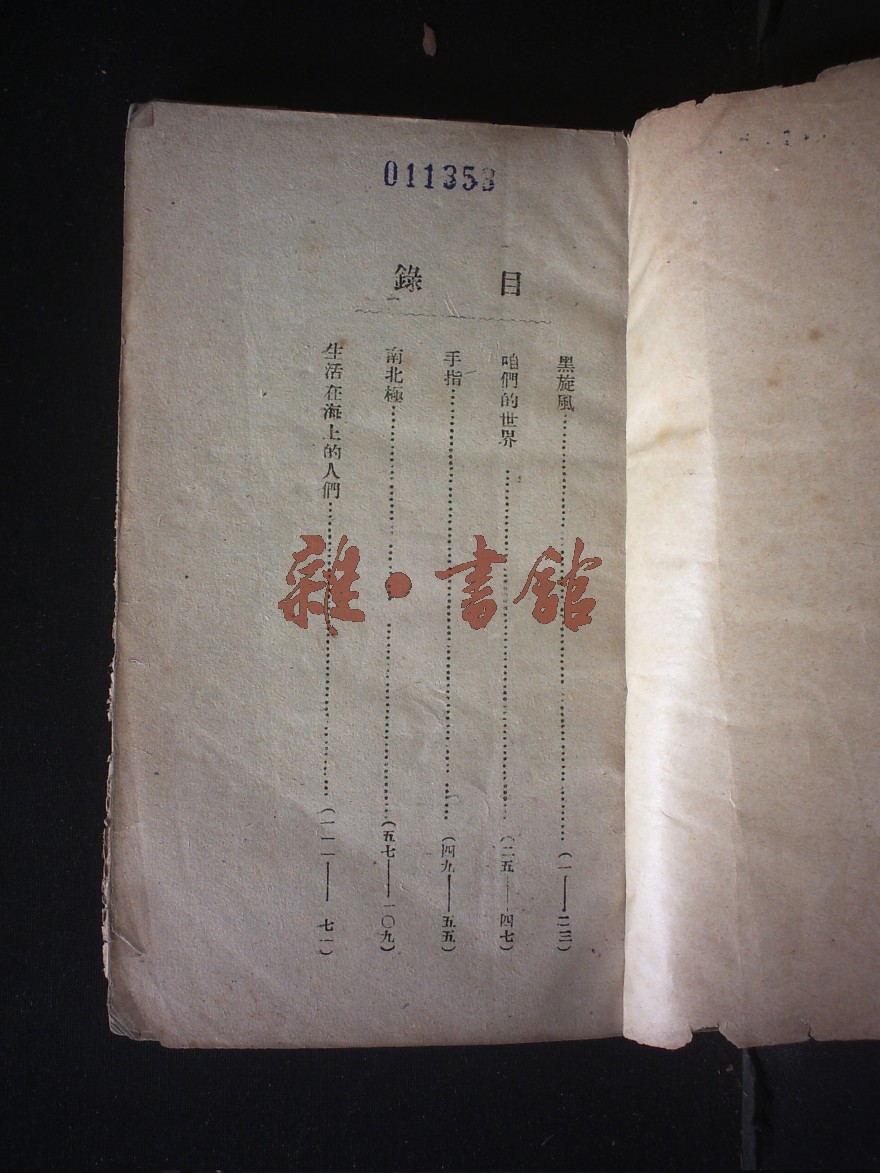 011353
目錄
黑旋風……(一——二三)
咱們的世界……(二五——四七)
手指……(四九——五五)
南北極……(五七——一〇九)
生活在海上的人們……(一一一——一七一)
雜·書館